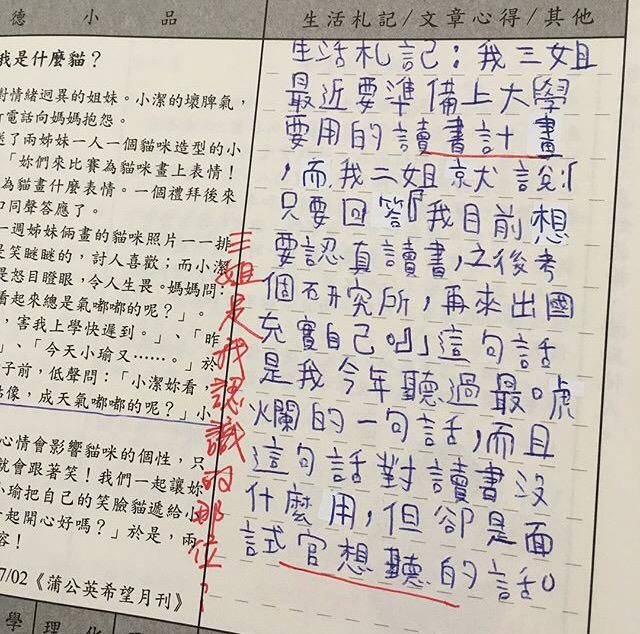 德小品
我是什麼貓？
對情緒迥異的姐妹。小潔的壞脾氣，
電話向媽媽抱怨。
送了兩姊妹一人一個貓咪造型的小
「妳們來比賽為貓咪畫上表情！
為貓畫什麼表情。一個禮拜後來
口同聲答應了。
一週姊妹倆畫的貓咪照片一一排
是笑瞇瞇的，討人喜歡；而小潔
是怒目瞪眼，令人生畏。媽媽問：
看起來總是氣嘟嘟的呢？」。
，害我上學快遲到。」、「昨
」、「今天小瑜又……。」於
子前，低聲問：「小潔妳看，
像，成天氣嘟嘟的呢？」小
心情會影響貓咪的個性，只
就會跟著笑！我們一起讓妳
小瑜把自己的笑臉貓遞給小
一起開心好嗎？」於是，兩
容！
7/02《蒲公英希望月刊》
學 理化
生活札記/文章心得/其他
生活札記：我三姐
最近要準備上大學
要用的讀書計畫
，而我二姐就說「
只要回答「我目前想
要認真讀書，之後考
個研究所，再來出國
充實自己吧」這句話
是我今年聽過最唬
爛的一句話，而且
這句話對讀書沒
什麼用，但卻是面
試官想聽的話。
三姐是我認識的那位？